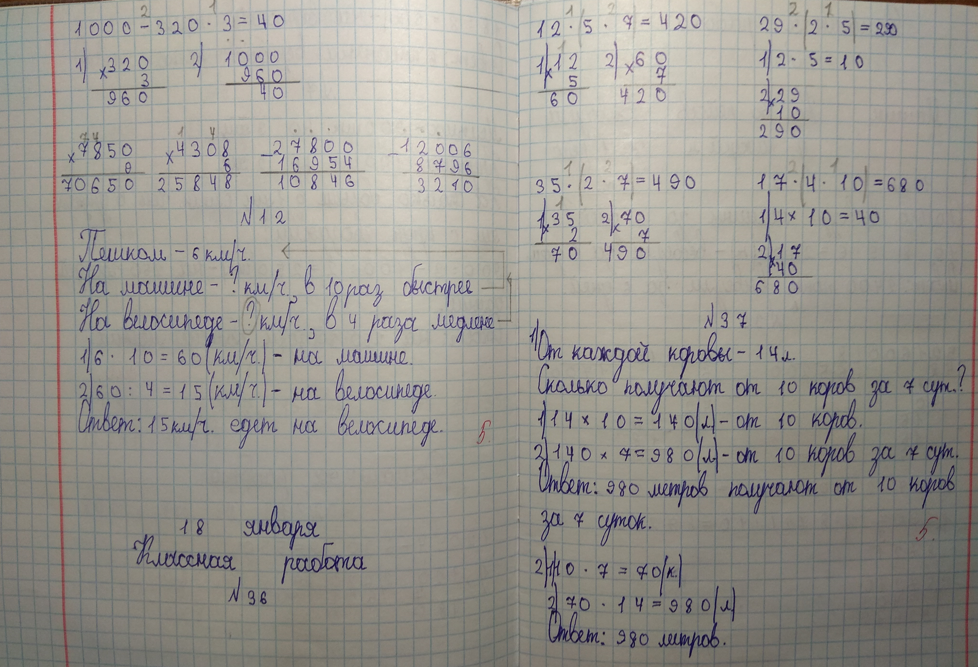 1000-320·3=40
1) ×320 2) 1000
3 960
960 40
×7850 ×4308 -27800 -12006
6 16954 8796
70650 25848 10846 3210
№12
Пешком - 6 км/ч.
На машине - ? км/ч, в 10 раз быстрее
На велосипеде - ? км/ч., в 4 раза медлене
1) 6 · 10 = 60 (км/ч.) - на машине.
2) 60 : 4 = 15 (км/ч.) - на велосипеде.
Ответ: 15 км/ч. едет на велосипеде.
5.
18 января
Классная работа
№36
12·(5·7=420 29·(2·5)=290
1) ×12 2) ×60 1) 2·5=10
5 7 2) ×29
60 420 10
290
35·(2·7=490 17·(4·10)=680
1) ×35 2) ×70 1) 4×10=40
2 7 2) ×17
70 490 40
680
№37
1) От каждой коровы - 14 л.
Сколько получают от 10 коров за 7 сут.?
1) 14 × 10 = 140 (л) - от 10 коров.
2) 140 × 7 = 980 (л) - от 10 коров за 7 сут.
Ответ: 980 метров получают от 10 коров
за 7 суток.
5.
2) 1) 10 · 7 = 70 (к)
2) 70 · 14 = 980 (л)
Ответ: 980 метров.